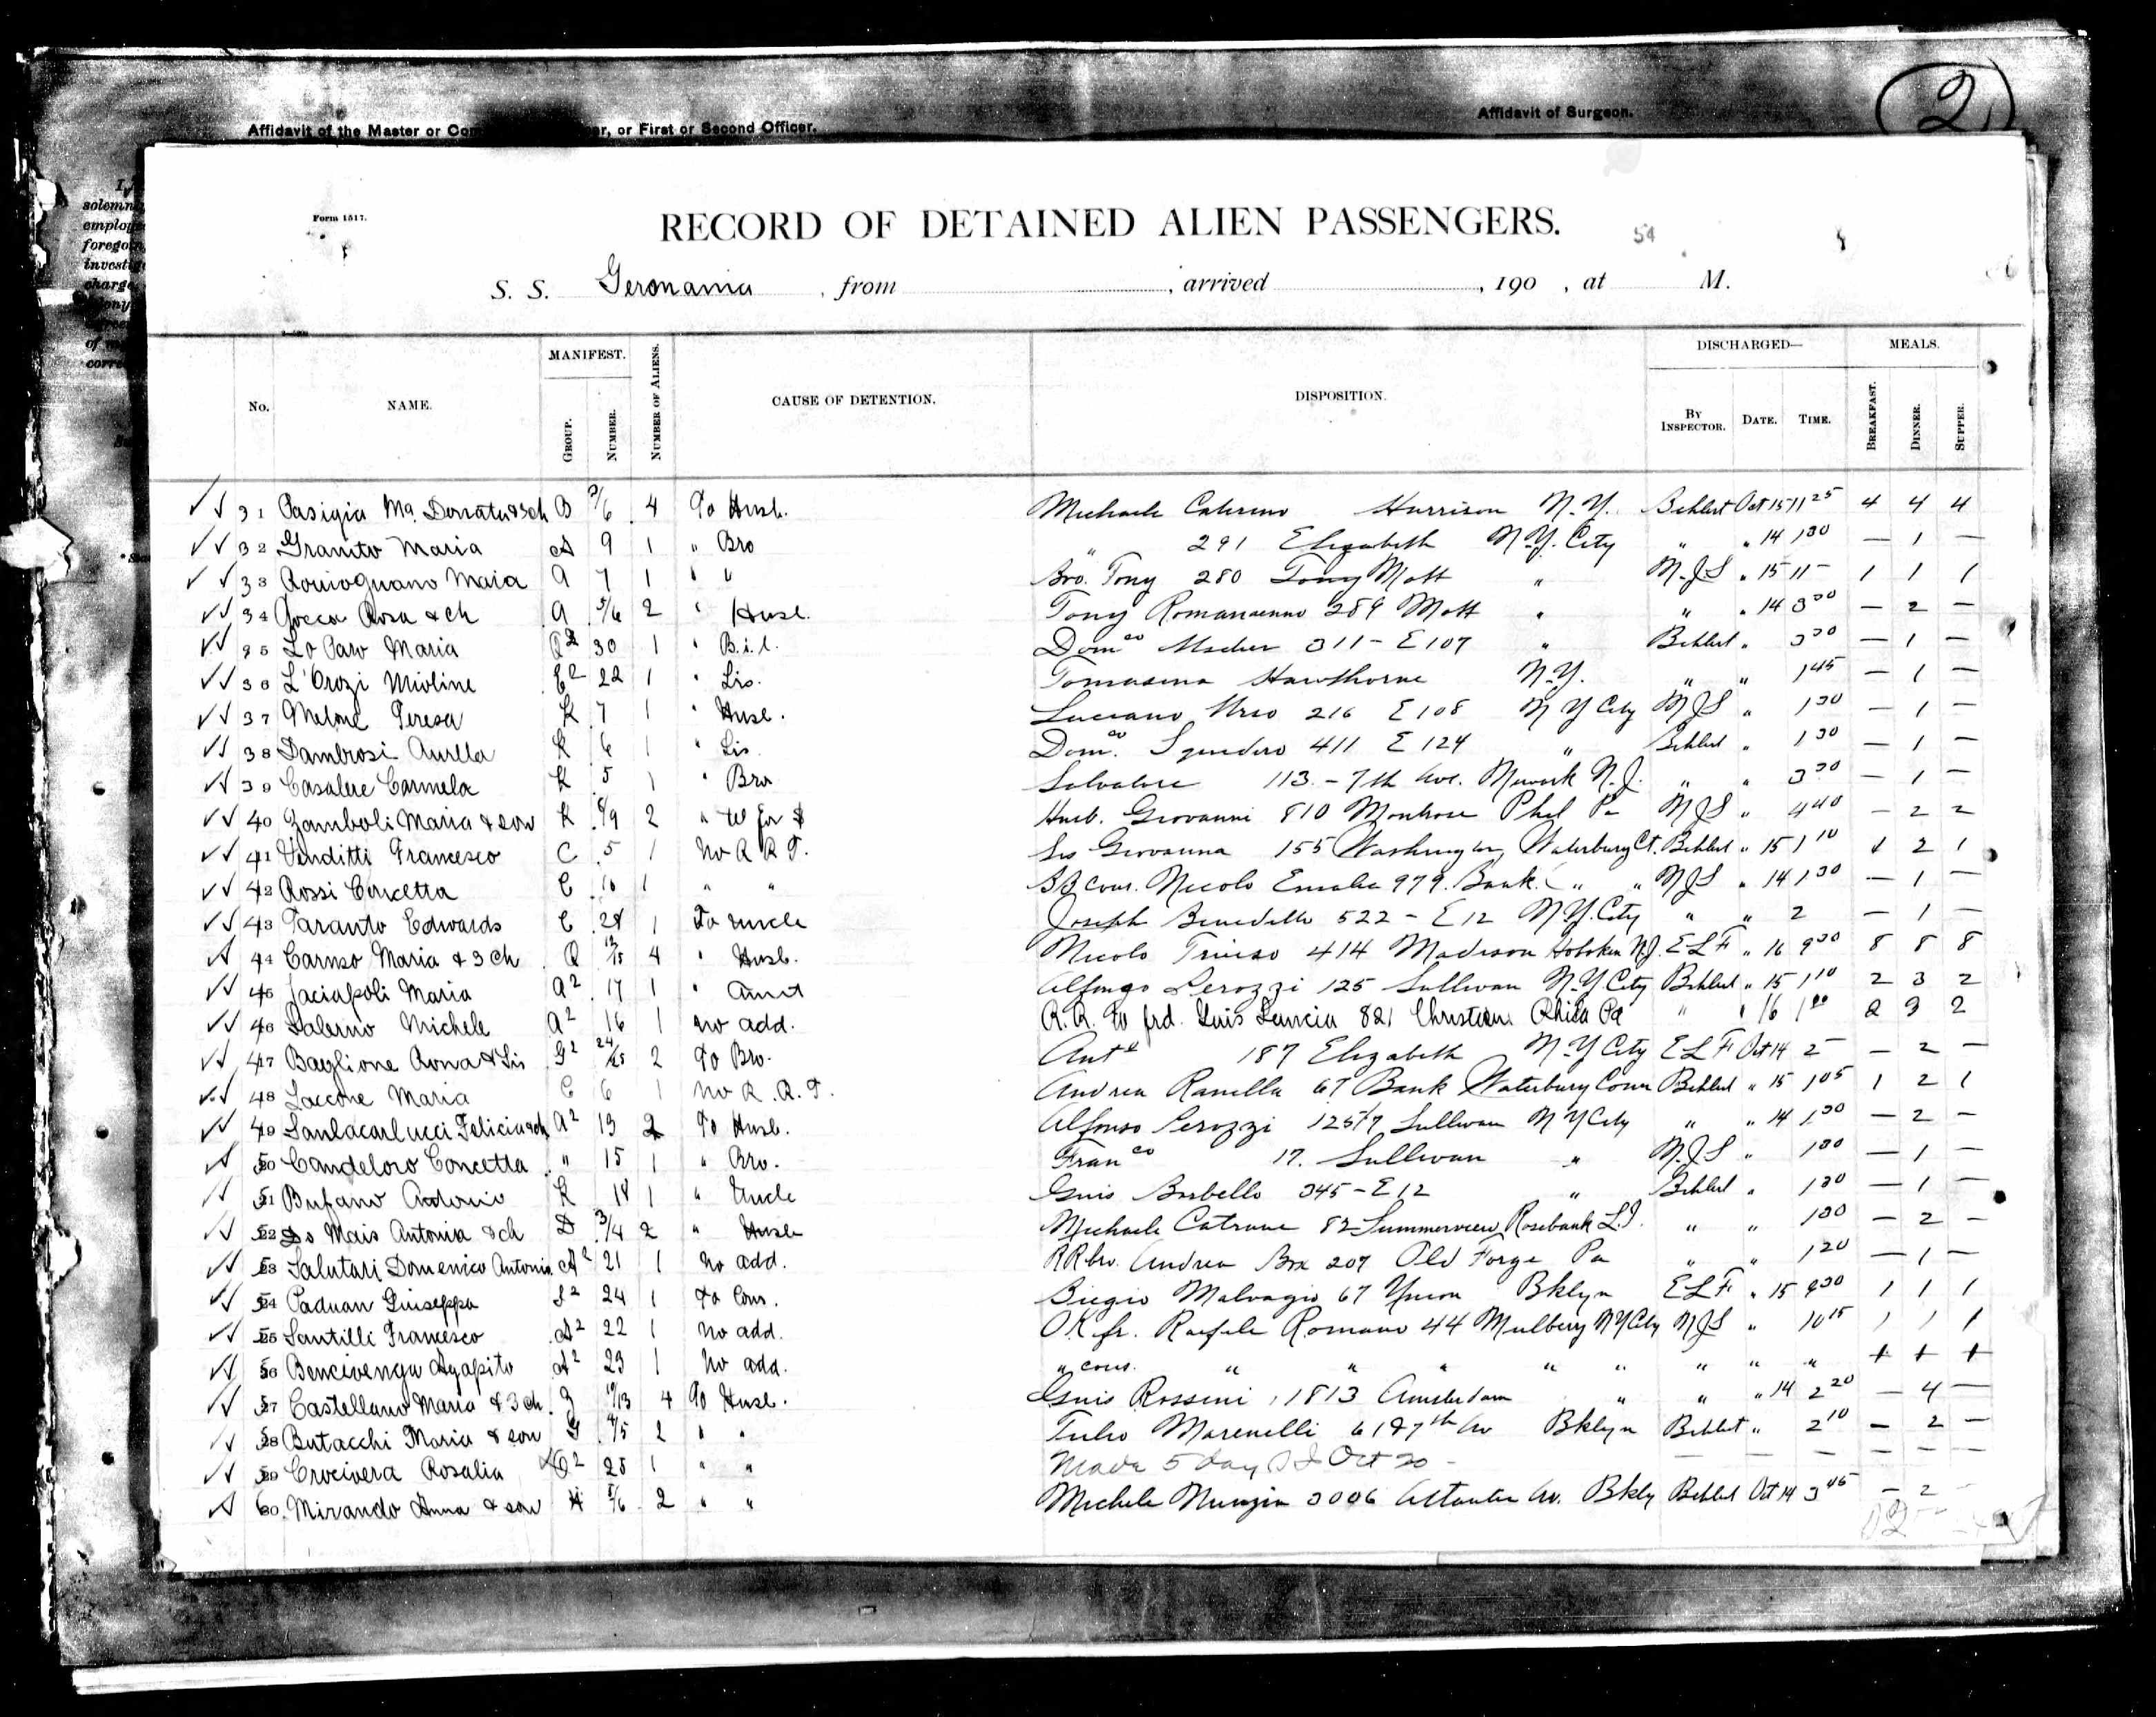 2
Affidavit of the Master or Com er, or First or Second Officer.
Affidavit of Surgeon.
Form 1517.
RECORD OF DETAINED ALIEN PASSENGERS.
54
S. S. Geronania, from , arrived , 190 , at M.
No. NAME. MANIFEST. GROUP. NUMBER. NUMBER OF ALIENS. CAUSE OF DETENTION. DISPOSITION. DISCHARGED— BY INSPECTOR. DATE. TIME. MEALS. BREAKFAST. DINNER. SUPPER.
31 Ma. B 4 To Husb. Michaele Harrison N.Y. Behlert Oct 15 11 25 4 4 4
32 Granito Maria A 9 1 " Bro " 291 Elizabeth N.Y. City " " 14 1 30 — 1 —
33 Maia A 7 1 " " Bro. Tony 280 Tony Mott " M.J.S " 15 11 – 1 1 1
34 Rocca Rosa & Ch A 5/6 2 " Husb. Tony 289 Mott " " " 14 3 30 — 2 —
35 Lo Paro Maria 30 1 " B.i.l. Dom co 311 – E 107 " Behlert " 3 30 — 1 —
36 L'Orozi Mioline E2 22 1 " Sis. Tomasina Hawthorne N.Y. " " 1 45 — 1 —
37 Melone Teresa K 7 1 " Husb. Luciano Urso 216 E 108 N Y City M J S " 1 30 — 1 —
38 Dambrosi Aurlla K 6 1 " Sis. Dom co 411 E 124 " Behlert " 1 30 — 1 —
39 Casalere Carmela K 5 1 " Bro Salvatore 113 – 7th Ave. Newark N.J. " " 3 30 — 1 —
40 Zamboli Maria & son K 8/9 2 " tel for $ Husb. Giovanni 810 Montrose Phil Pa M J S " 4 40 — 2 2
41 Venditti Francesco C 5 1 No R R T. Sis Giovanna 155 Washington, Waterbury Ct. Behlert " 15 1 10 1 2 1
42 Rossi Concetta C 10 1 " " Cous. Nicolo 979 Bank " " M J S " 14 1 30 — 1 —
43 Taranto Edwards C 28 1 To uncle Joseph Benedetto 522 – E 12 N.Y. City " " 2 — 1 —
44 Caruso Maria & 3 Ch Q 4 " Husb. Nicolo 414 Madison Hoboken N.J. E L F " 16 9 30 8 8 8
45 Jaciapoli Maria A2 17 1 " Aunt Alfonso Perozzi 125 Sullivan N.Y City Behlert " 15 1 10 2 3 2
46 Salerno Michele A2 16 1 No add. R.R. to frd. Luis Lancia 821 Christian Phila Pa " " 16 1 2 3 2
47 Baglione Rona & Sis G2 24/25 2 To Bro. Anto 187 Elizabeth N.Y City E L F Oct 14 2 — 2 —
48 Iaccone Maria C 6 1 No R.R.T. Andrea Ranella 67 Bank Waterbury Conn Behlert " 15 1 05 1 2 1
49 Santacarlucci Felicia & ch A2 13 2 To Husb. Alfonso Perozzi Sullivan N Y City " " 14 1 30 — 2 —
50 Candeloro Concetta " 15 1 " Bro. Fran co 17. Sullivan " M.J.S " 1 30 — 1 —
51 Bufano Antonio K 18 1 " Uncle Guis Barbello 345 – E 12 " Behlert " 1 30 — 1 —
52 Mais Antonia & ch D 3/4 2 " Husb Michaele Catrone 82 Rosebank L.I. " " 1 30 — 2 —
53 Salutari Domenico Antonio A2 21 1 No add. R R bro. Andrea Box 207 Old Forge Pa " " 1 20 — 1 —
54 Paduan Guiseppa 24 1 To Cous. Biagio Malvagio 67 Union Bklyn E L F " 15 9 30 1 1 1
55 Santilli Francesco A2 22 1 No add. O.K. fr. Raefele Romano 44 Mulbery N Y City M J S " 10 15 1 1 1
56 Bencivenga Agapito A2 23 1 No add. " cous. " " " " " " " " + + +
57 Castellano Maria & 3 ch. 10/13 4 To Husb. Guis Rossini, 1813 Amsterdam " " " 14 2 20 — 4 —
58 Butacchi Maria & son G 4/5 2 " " Tulio Marenelli 6187th Av Bklyn Behlert " 2 10 — 2 —
59 Crocivera Rosalia 25 1 " " Made 5 day S I Oct 20 — — — — — —
60. Mirando Anna & son H 5/6 2 " " Michele Nunzia 3006 Atlantic Av. Bkly Behlert Oct 14 3 45 — 2 —